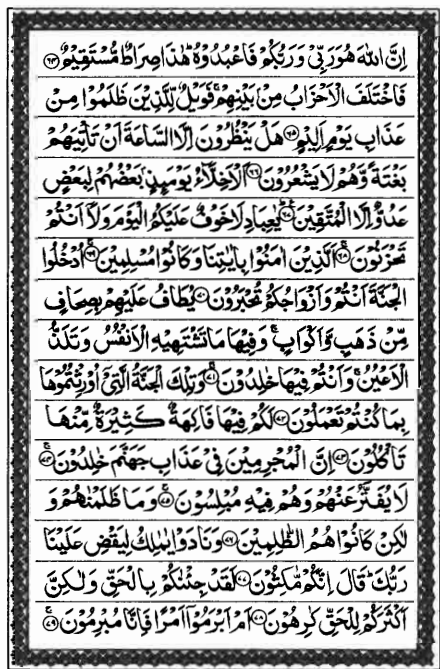 اِنَّ اللّٰهَ هُوَ رَبِّىْ وَرَبُّكُمْ فَاعْبُدُوْهُ ؕ هٰذَا صِرَاطٌ مُّسْتَقِيْمٌ ﴿۶۴﴾
فَاخْتَلَفَ الْاَحْزَابُ مِنْۢ بَيْنِهِمْ ۚ فَوَيْلٌ لِّلَّذِيْنَ ظَلَمُوْا مِنْ
عَذَابِ يَوْمٍ اَلِيْمٍ ﴿۶۵﴾ هَلْ يَنْظُرُوْنَ اِلَّا السَّاعَةَ اَنْ تَاْتِيَهُمْ
بَغْتَةً وَّهُمْ لَا يَشْعُرُوْنَ ﴿۶۶﴾ اَلْاَخِلَّآءُ يَوْمَئِذٍۭ بَعْضُهُمْ لِبَعْضٍ
عَدُوٌّ اِلَّا الْمُتَّقِيْنَ ﴿۶۷﴾ يٰعِبَادِ لَا خَوْفٌ عَلَيْكُمُ الْيَوْمَ وَلَاۤ اَنْتُمْ
تَحْزَنُوْنَ ﴿۶۸﴾ اَلَّذِيْنَ اٰمَنُوْا بِاٰيٰتِنَا وَكَانُوْا مُسْلِمِيْنَ ﴿۶۹﴾ اُدْخُلُوا
الْجَنَّةَ اَنْتُمْ وَاَزْوَاجُكُمْ تُحْبَرُوْنَ ﴿۷۰﴾ يُطَافُ عَلَيْهِمْ بِصِحَافٍ
مِّنْ ذَهَبٍ وَّاَكْوَابٍ ۚ وَفِيْهَا مَا تَشْتَهِيْهِ الْاَنْفُسُ وَتَلَذُّ
الْاَعْيُنُ ۚ وَاَنْتُمْ فِيْهَا خٰلِدُوْنَ ﴿۷۱﴾ وَتِلْكَ الْجَنَّةُ الَّتِىْۤ اُوْرِثْتُمُوْهَا
بِمَا كُنْتُمْ تَعْمَلُوْنَ ﴿۷۲﴾ لَكُمْ فِيْهَا فَاكِهَةٌ كَثِيْرَةٌ مِّنْهَا
تَاْكُلُوْنَ ﴿۷۳﴾ اِنَّ الْمُجْرِمِيْنَ فِىْ عَذَابِ جَهَنَّمَ خٰلِدُوْنَ ﴿۷۴﴾
لَا يُفَتَّرُ عَنْهُمْ وَهُمْ فِيْهِ مُبْلِسُوْنَ ﴿۷۵﴾ وَمَا ظَلَمْنٰهُمْ وَ
لٰكِنْ كَانُوْا هُمُ الظّٰلِمِيْنَ ﴿۷۶﴾ وَنَادَوْا يٰمٰلِكُ لِيَقْضِ عَلَيْنَا
رَبُّكَ ؕ قَالَ اِنَّكُمْ مّٰكِثُوْنَ ﴿۷۷﴾ لَقَدْ جِئْنٰكُمْ بِالْحَقِّ وَلٰكِنَّ
اَكْثَرَكُمْ لِلْحَقِّ كٰرِهُوْنَ ﴿۷۸﴾ اَمْ اَبْرَمُوْۤا اَمْرًا فَاِنَّا مُبْرِمُوْنَ ﴿۷۹﴾